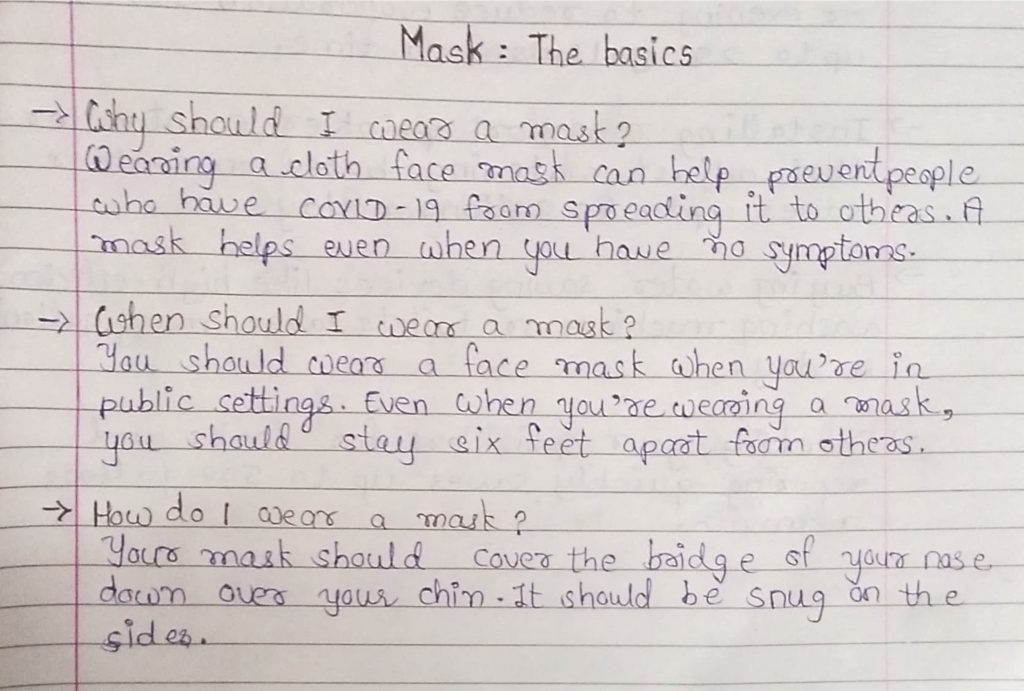 Mask : The basics
→ Why should I wear a mask?
Wearing a cloth face mask can help prevent people
who have COVID-19 from spreading it to others. A
mask helps even when you have no symptoms.
→ When should I wear a mask?
You should wear a face mask when you're in
public settings. Even when you're wearing a mask,
you should stay six feet apart from others.
→ How do I wear a mask?
Your mask should cover the bridge of your nose
down over your chin. It should be snug on the
sides.